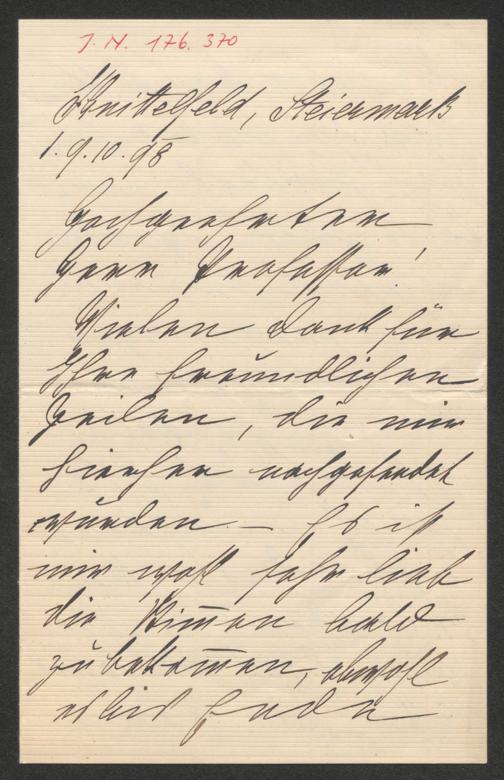 J. N. 176.370
Knittelfeld, Steiermark
1. 9. 10. 98
Hochgeehrter
Herr Professor!
Vielen Dank für
Ihre freundlichen
Zeilen, die mir
hierher nachgesendet
wurden. — Es ist
mir wohl sehr lieb
die Stim̅en bald
zu bekom̅en, obwohl
es bis Ende